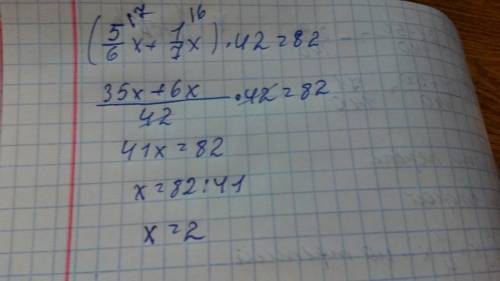 (5/6 x + 1/7 x) · 42 = 82
35x + 6x / 42 · 42 = 82
41x = 82
x = 82 : 41
x = 2